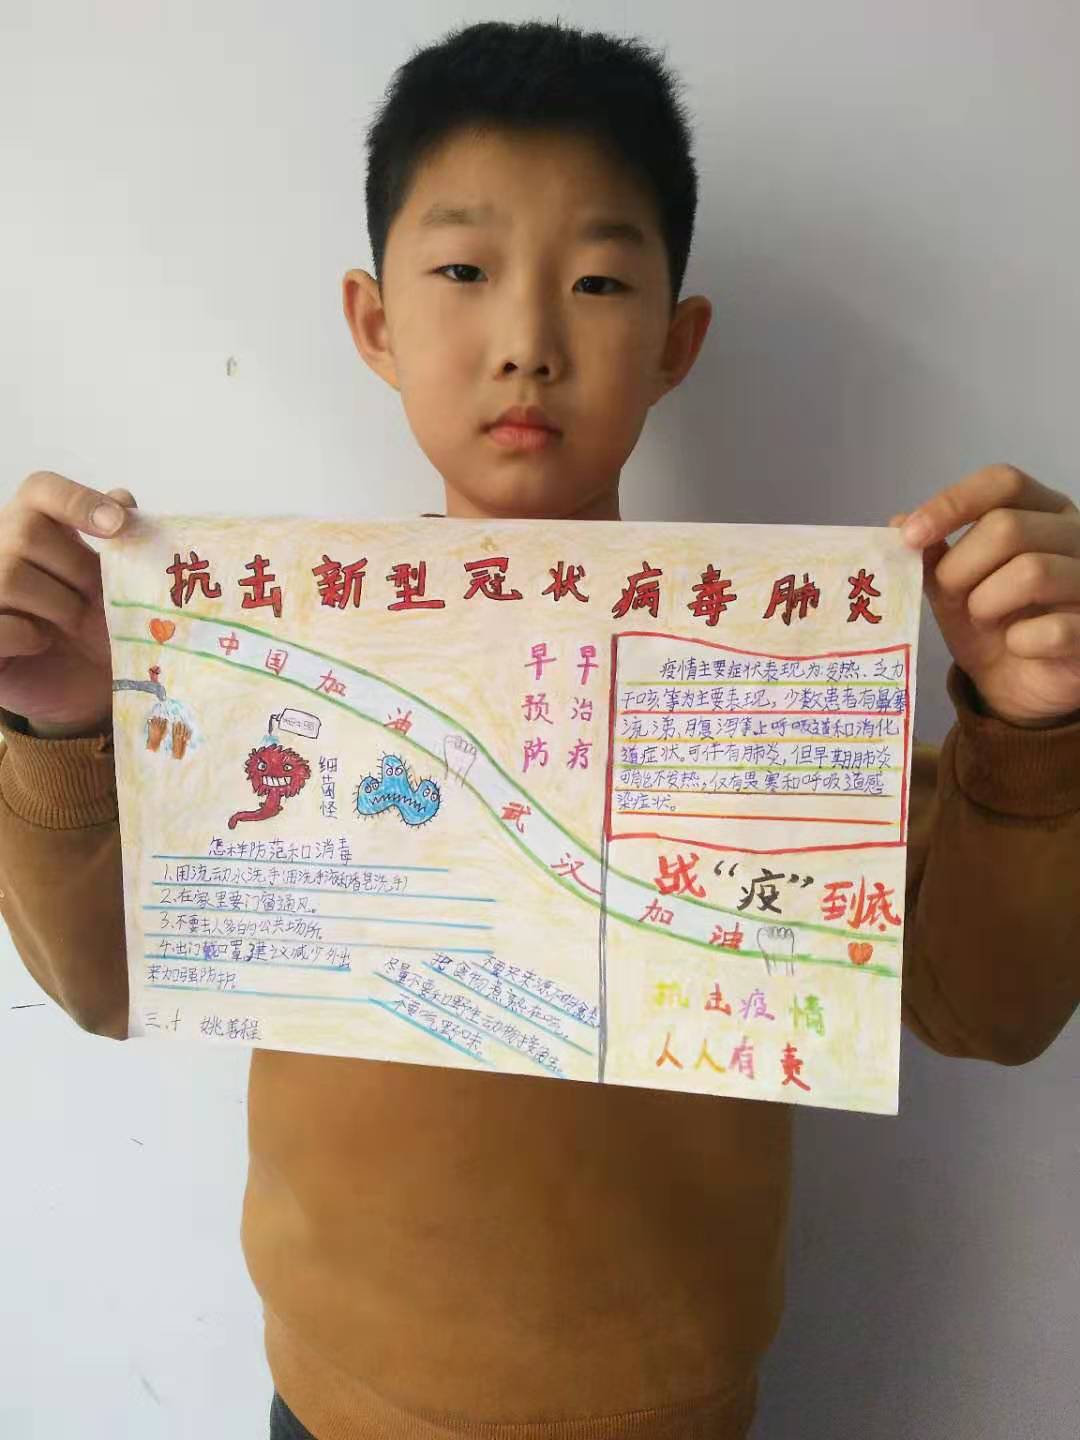 抗击新型冠状病毒肺炎
中国加油
武汉加油
早预防
早治疗
疫情主要症状表现为发热、乏力
干咳等为主要表现,少数患者有鼻塞
流涕、腹泻等上呼吸道和消化
道症状。可伴有肺炎,但早期肺炎
可能不发热,仅有畏寒和呼吸道感
染症状。
细菌怪
怎样防范和消毒
1.用流动水洗手(用洗手液或香皂洗手)
2.在家里要门窗通风。
3.不要去人多的公共场所。
4.出门戴口罩,建议减少外出
来加强防护。
不要买来源不明
把食物煮熟在吃。
尽量不要和野生动物接
不要吃野味。
三.十 姚善程
战“疫”到底
抗击疫情
人人有责